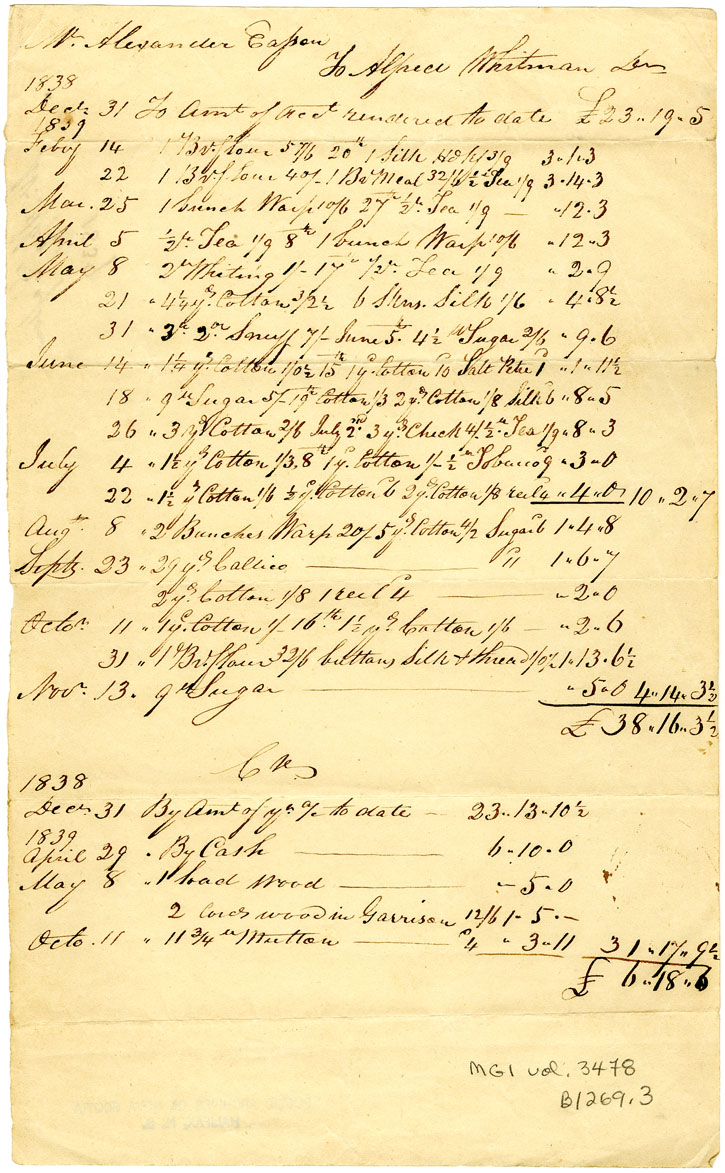 Mr. Alexander Easson
To Alfred Whitman Dr
1838
Decr. 31 To Amt of acct rendered to date £23 " 19 " 5
1839
Feby 14 1 Br. flour 57/6 20th 1 Silk Hdkf 3/9 3 " 1 " 3
22 1 Br. flour 40/- 1 Br Meal 32/6 ½ Tea 1/9 3 " 14 " 3
Mar. 25 1 bunch Warp 10/6 27th ½ Tea 1/9 — " 12 " 3
April 5 ½ Tea 1/9 8th 1 bunch Warp 10/6 " 12 " 3
May 8 Whiting 1/- 17th ½ Tea 1/9 " 2 " 9
21 " 4¼ yds. Cotton 3/2½ 6 Skns. Silk 1/6 " 4 " 8½
31 " Snuff 7/- June 5th 4½ Sugar 2/6 " 9 " 6
June 14 " 1¼ yd. Cotton 1/0½ 15th 1 yd. Cotton 10 Salt Petre 1d " 1 " 11½
18 " 9 Sugar 5/- 19th Cotton 1/3 2 yds. Cotton 1/8 Silk 6 " 8 " 5
26 " 3 yds Cotton 2/6 July 2nd 3 yds Check 4/- ½ Tea 1/9 " 8 " 3
July 4 " 1½ yds Cotton 1/3. 8th 1 yd. Cotton 1/- ½ Tobacco 9 " 3 " 0
22 " 1½ yds Cotton 1/6 ½ yd. Cotton 6 2 yds. Cotton 1/8 reel 4 " 4 " 0 10 " 2 " 7
Augt. 8 " 2 Bunches Warp 20/ 5 yds. Cotton 4/2 Sugar 6 1 " 4 " 8
Septr. 23 " 29 yds. Callico — 11 1 " 6 " 7
2 yds. Cotton 1/8 1 reel 4 — " 2 " 0
Octor. 11 " 1 yd. Cotton 1/- 16th 1½ yds. Cotton 1/6 — " 2 " 6
31 " 1 Br. flour 32/6 buttons Silk & thread 1/0½ 1 " 13 " 6½
Novr. 13 " 9 Sugar — " 5 " 0 4 " 14 " 3½
£ 38 " 16 " 3½
Cr.
1838
Decr. 31 By Amt of yr a/c to date — 23 " 13 " 10½
1839
April 29 " By Cash — 6 " 10 " 0
May 8 " 1 load wood — " 5 " 0
2 cords wood in Garrison 12/6 1 " 5 " -
Octo. 11 " 11¾ Mutton — 4 " 3 " 11 31 " 17 " 9½
£ 6 " 18 " 6
MG1 vol. 3478
B1269.3